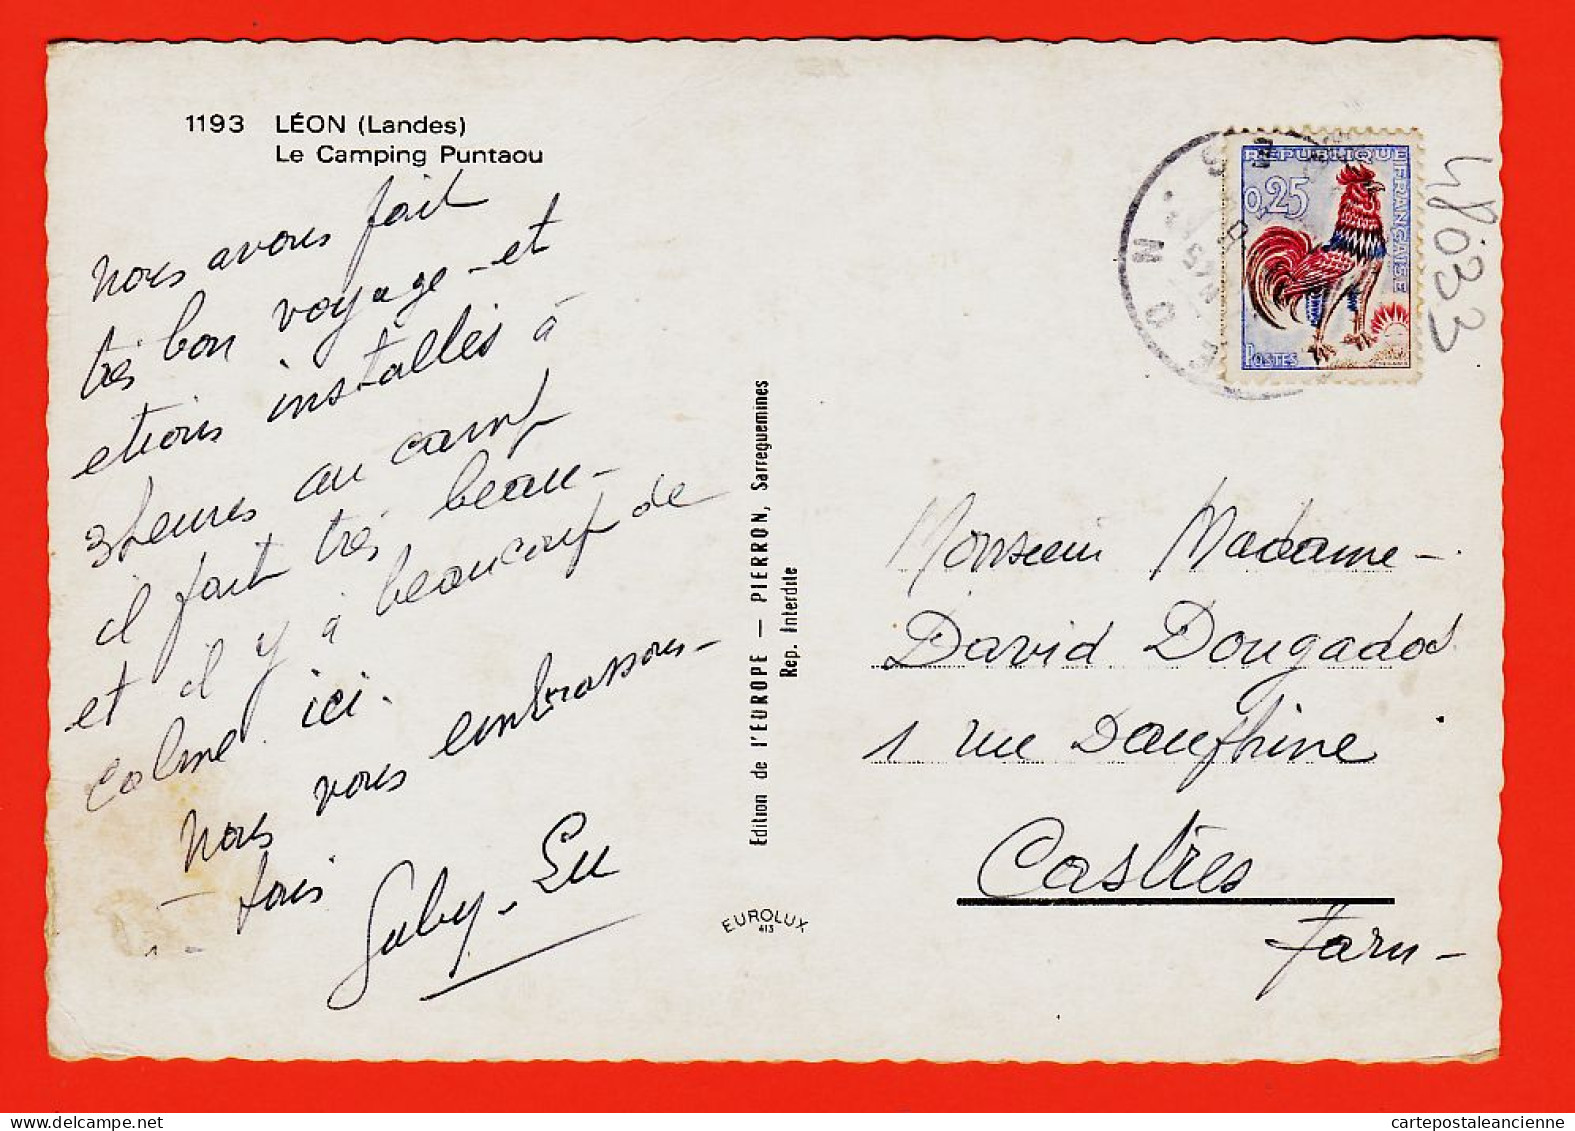 1193 LÉON (Landes)
Le Camping Puntaou
nous avons fait
très bon voyage - et
etions installés à
3 heures au camp
il fait très beau -
et il y à beaucoup de
calme ici.
nous vous embrassons -
tous
Gaby - Lu
Edition de l'EUROPE — PIERRON, Sarreguemines
Rep. Interdite
EUROLUX
413
REPUBLIQUE FRANÇAISE
0,25
POSTES
48033
Monsieur Madame -
David Dougados
1 rue Dauphine
Castres
Tarn -
cartepostaleancienne